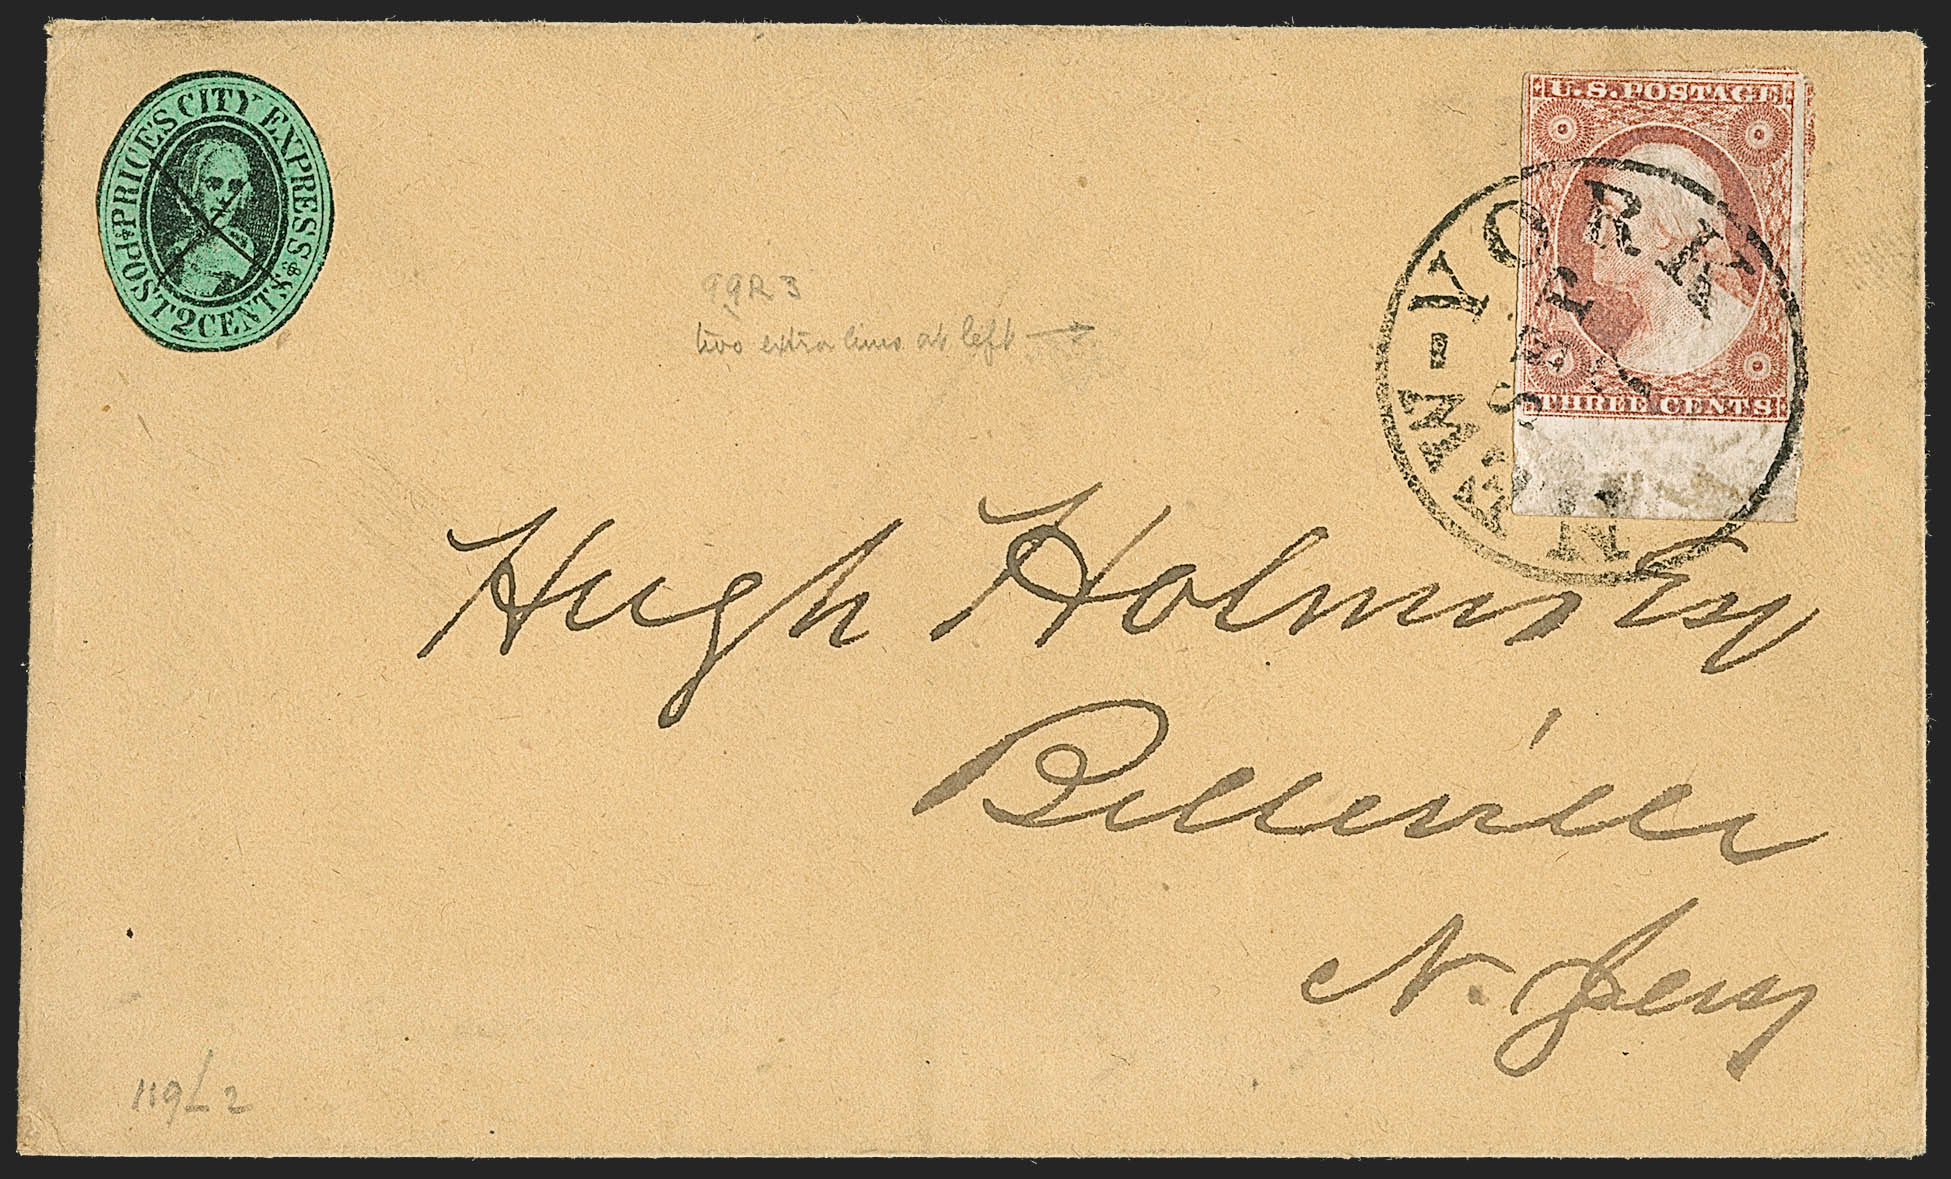 PRICE'S CITY EXPRESS
POST 2 CENTS
U.S. POSTAGE
THREE CENTS
NEW-YORK
SEP
99R3
two extra lines at left →
Hugh Holmes Esq
Belleville
N. Jersy
119L2